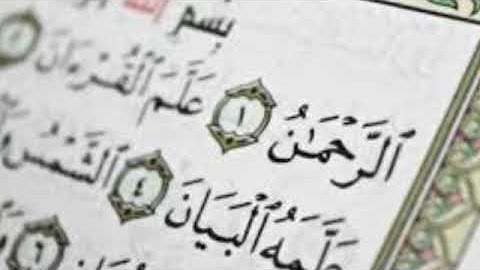 بِسْمِ ٱللَّهِ
ٱلرَّحْمَٰنُ ١ عَلَّمَ ٱلْقُرْءَانَ ٢
عَلَّمَهُ ٱلْبَيَانَ ٤ ٱلشَّمْسُ
٦